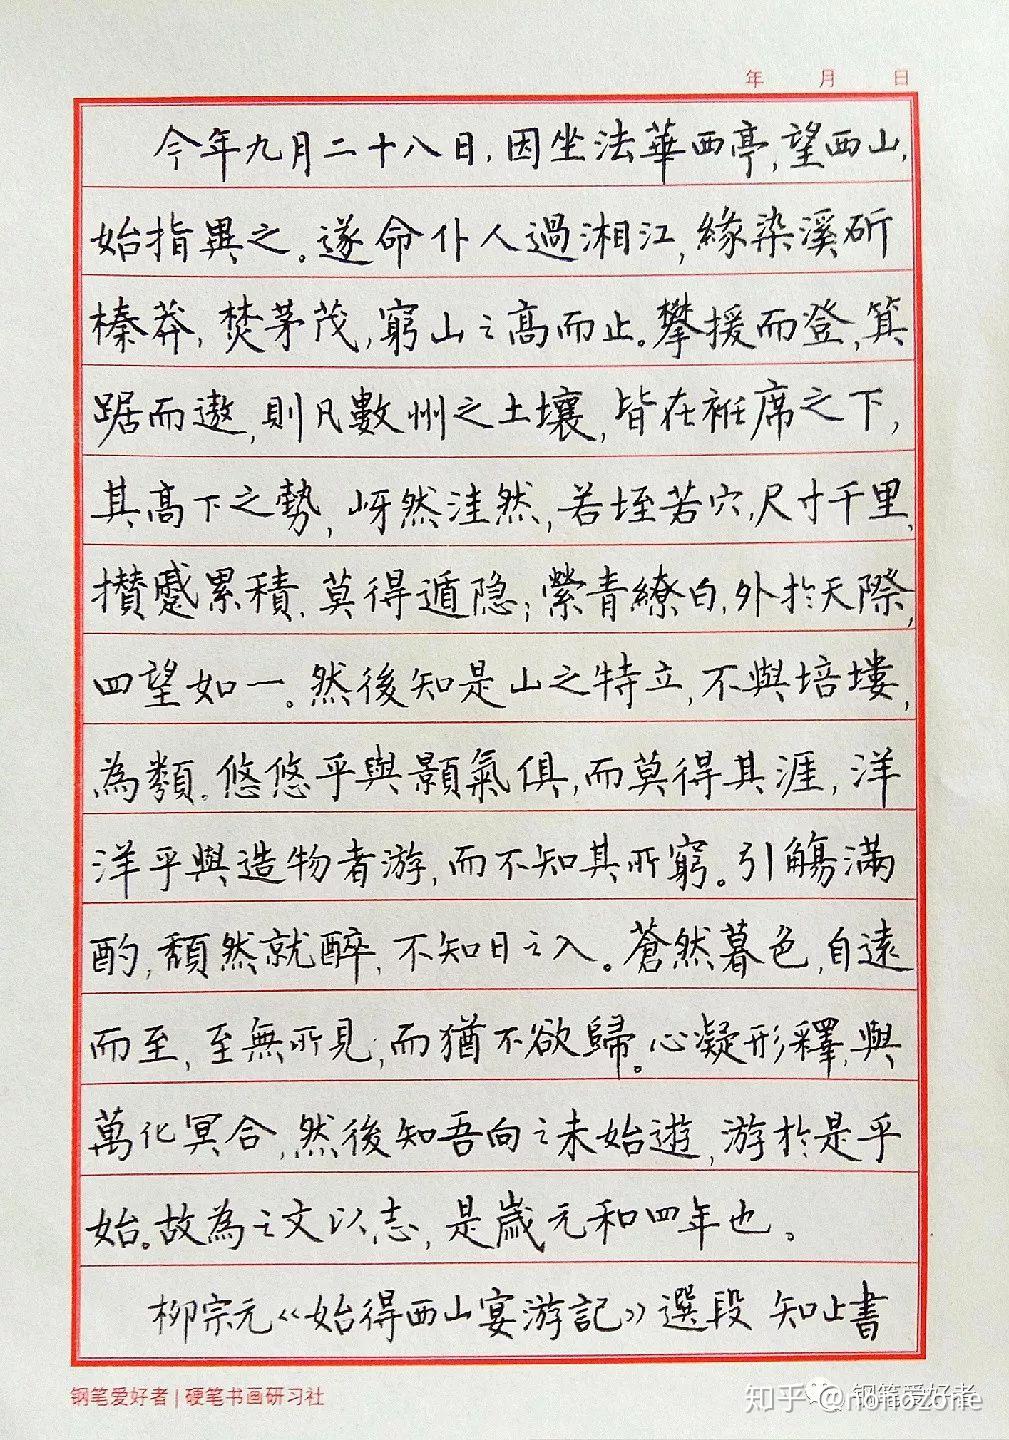 年 月 日
今年九月二十八日，因坐法華西亭，望西山，
始指異之。遂命仆人過湘江，緣染溪斫
榛莽，焚茅茂，窮山之高而止。攀援而登，箕
踞而遨，則凡數州之土壤，皆在袵席之下，
其高下之勢，岈然洼然，若垤若穴，尺寸千里，
攢蹙累積，莫得遁隐；縈青繚白，外於天際，
四望如一。然後知是山之特立，不與培塿，
為類。悠悠乎與顥氣俱，而莫得其涯，洋
洋乎與造物者游，而不知其所窮。引觴滿
酌，頹然就醉，不知日之入。蒼然暮色，自遠
而至，至無所見，而猶不欲歸。心凝形釋，與
萬化冥合，然後知吾向之未始遊，游於是乎
始。故為之文以志，是歲元和四年也。
柳宗元《始得西山宴游記》選段 知止書
钢笔爱好者|硬笔书画研习社
知乎 @nonozone
钢笔爱好者